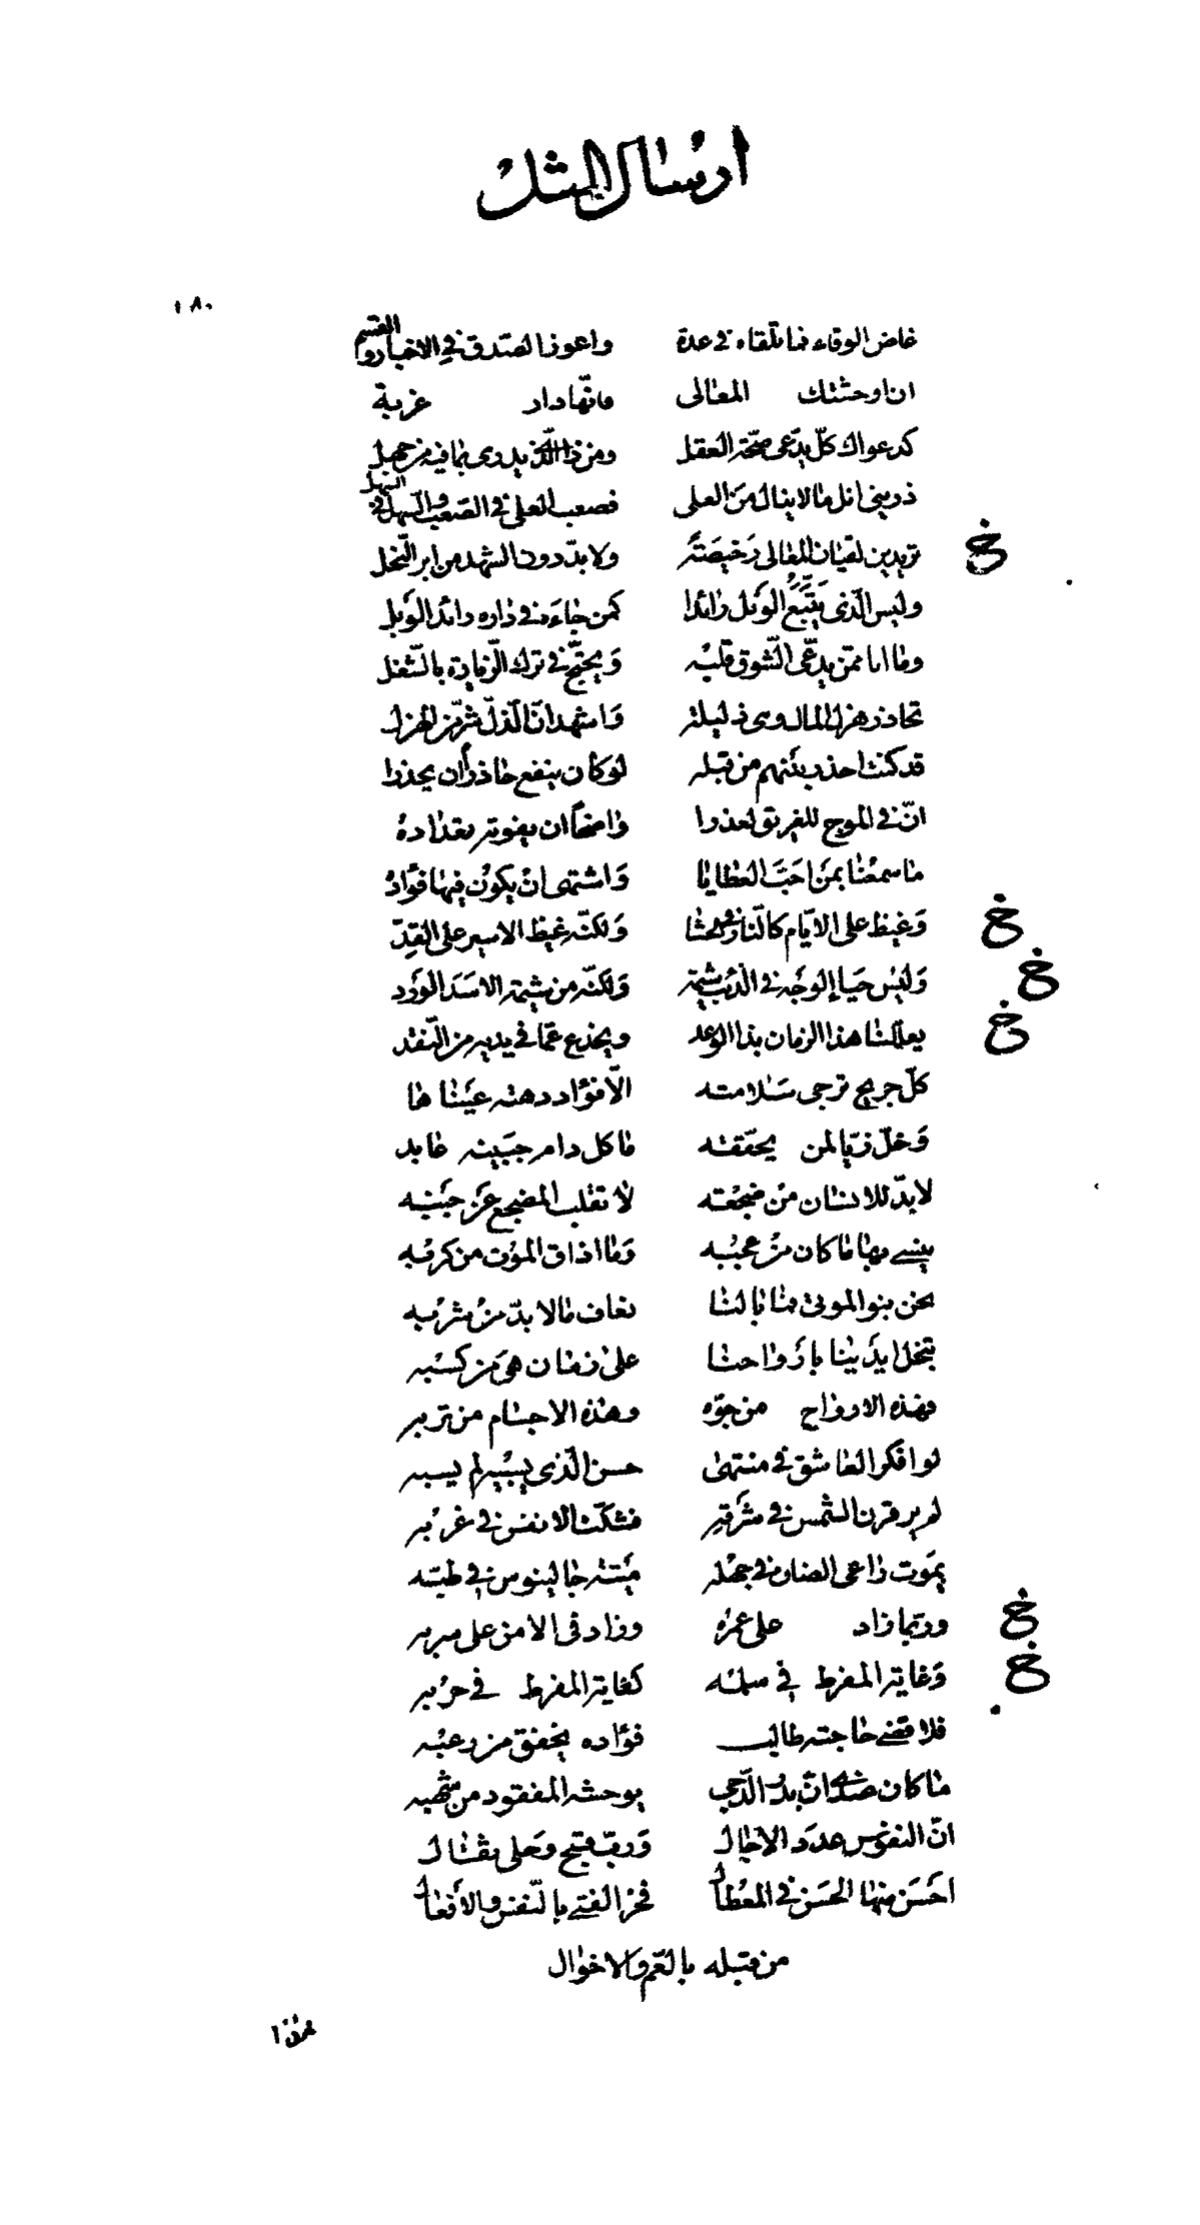 ارسال المثل
١٨٠
غاض الوفاء فما تلقاه في عدة واعوز الصدق في الاخبار والقسم
ان اوحشتك المعالى فانها دار غربة
كدعواك كل يدعى صحة العقل ومن ذا الذي يدرى بما فيه من جهل
ذرينى انل ما لا ينال من العلى فصعب العلى في الصعب والسهل في السهل
تريدين لقيان المعالى رخيصة ولا بد دون الشهد من ابر النحل
خ
وليس الذى يتتبع الوبل رائدا كمن جاءه في داره رائد الوبل
وما انا ممن يدعى الشوق قلبه ويحتج في ترك الزيارة بالشغل
تحاذر هزل المال وهى ذليلة واشهد ان الذل شر من الهزل
قد كنت احذر بينهم من قبله لو كان ينفع حاذرا ان يحذرا
ان في الموج للغريق لعذرا واضحا ان يفوته تعداده
ما سمعنا بمن احب العطايا واشتهى ان يكون فيها فؤاده
وغيظ على الايام كالنار في الحشا ولكنه غيظ الاسير على القد
خ
وليس حياء الوجه في الذئب شيمة ولكنه من شيمة الاسد الورد
خ
يعللنا هذا الزمان بذا الوعد ويخدع عما في يديه من النقد
خ
كل جريح ترجى سلامته الا فؤاد دهته عيناها
وخل زيا لمن يحققه ما كل دام جبينه عابد
لا بد للانسان من ضجعته لا تقلب المضجع عن جنبه
ينسى بها ما كان من عجبه وما اذاق الموت من كربه
نحن بنو الموتى فما بالنا نعاف ما لا بد من شربه
تبخل ايدينا بارواحنا على زمان هى من كسبه
فهذه الارواح من جوه وهذه الاجسام من تربه
لو افكر العاشق في منتهى حسن الذى يسبيه لم يسبه
لم ير قرن الشمس في شرقه فشكت الانفس في غربه
يموت راعى الضان في جهله ميتة جالينوس في طبه
وربما زاد على عمره وزاد في الامن على سربه
خ
وغاية المفرط في سلمه كغاية المفرط في حربه
خ
فلا قضى حاجته طالب فؤاده يخفق من رعبه
ما كان عندى ان بدر الدجى يوحشه المفقود من شهبه
ان النفوس عدد الآجال ورب قبح وحلى ثقال
احسن منها الحسن في المعطال فخر الفتى بالنفس والافعال
من قبله بالعم والاخوال